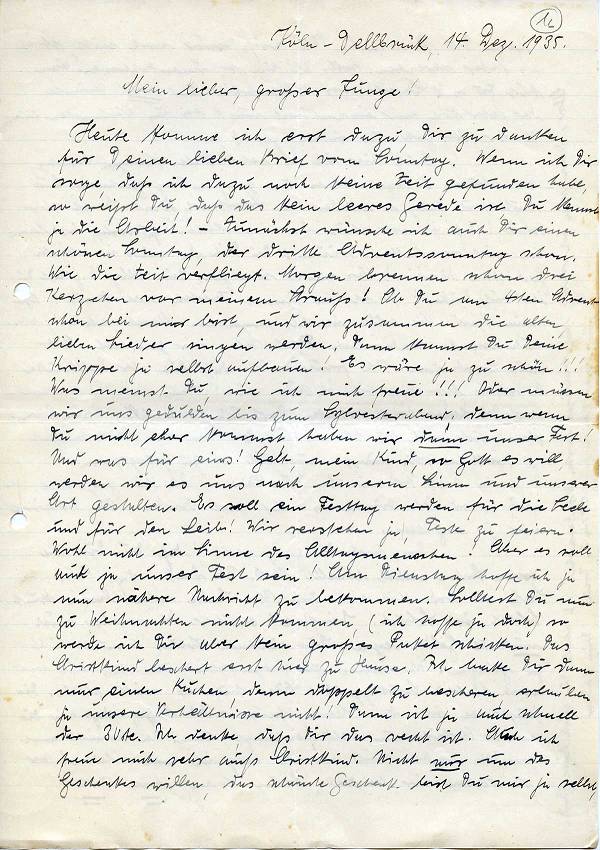 16
Köln-Dellbrück, 14. Dez. 1935.
Mein lieber, großer Junge!
Heute komme ich erst dazu, Dir zu danken
für Deinen lieben Brief vom Sonntag. Wenn ich Dir
sage daß ich dazu noch keine Zeit gefunden habe,
so weißt Du, daß das kein leeres Gerede ist, Du kennst
ja die Arbeit! – Zunächst wünsche ich auch Dir einen
schönen Sonntag, der dritte Adventssonntag schon.
Wie die Zeit verfliegt. Morgen brennen schon drei
Kerzchen vor meinem Strauß! Ob Du am 4ten Advent
schon bei mir bist, und wir zusammen die alten,
lieben Lieder singen werden, dann kannst Du Deine
Krippe ja selbst aufbauen! Es wäre ja zu schön!!!
Was meinst Du wie ich mich freue!!! Oder müssen
wir uns gedulden bis zum Sylvesterabend, denn wenn
Du nicht eher kommst, haben wir dann unser Fest!
Und was für eins! Gelt, mein Kind, so Gott es will
werden wir es uns nach unserem Sinn und unserer
Art gestalten. Es soll ein Festtag werden für die Seele
und für den Leib! Wir verstehen ja, Feste zu feiern.
Wohl nicht im Sinne des Alltagsmenschen! Aber es soll
auch ja unser Fest sein! Am Dienstag hoffe ich ja
nun nähere Nachricht zu bekommen. Solltest Du nun
zu Weihnachten nicht kommen (ich hoffe ja doch) so
werde ich Dir aber kein großes Paket schicken. Das
Christkind beschert erst hier zu Hause. Ich backe Dir dann
nur einen Kuchen, denn doppelt zu bescheren erlauben
ja unsere Verhältnisse nicht! Dann ist ja auch schnell
der 30te. Ich denke daß Dir das recht ist. Auch ich
freue mich sehr aufs Christkind. Nicht nur um des
Geschenkes willen, das schönste Geschenk bist Du mir ja selbst,